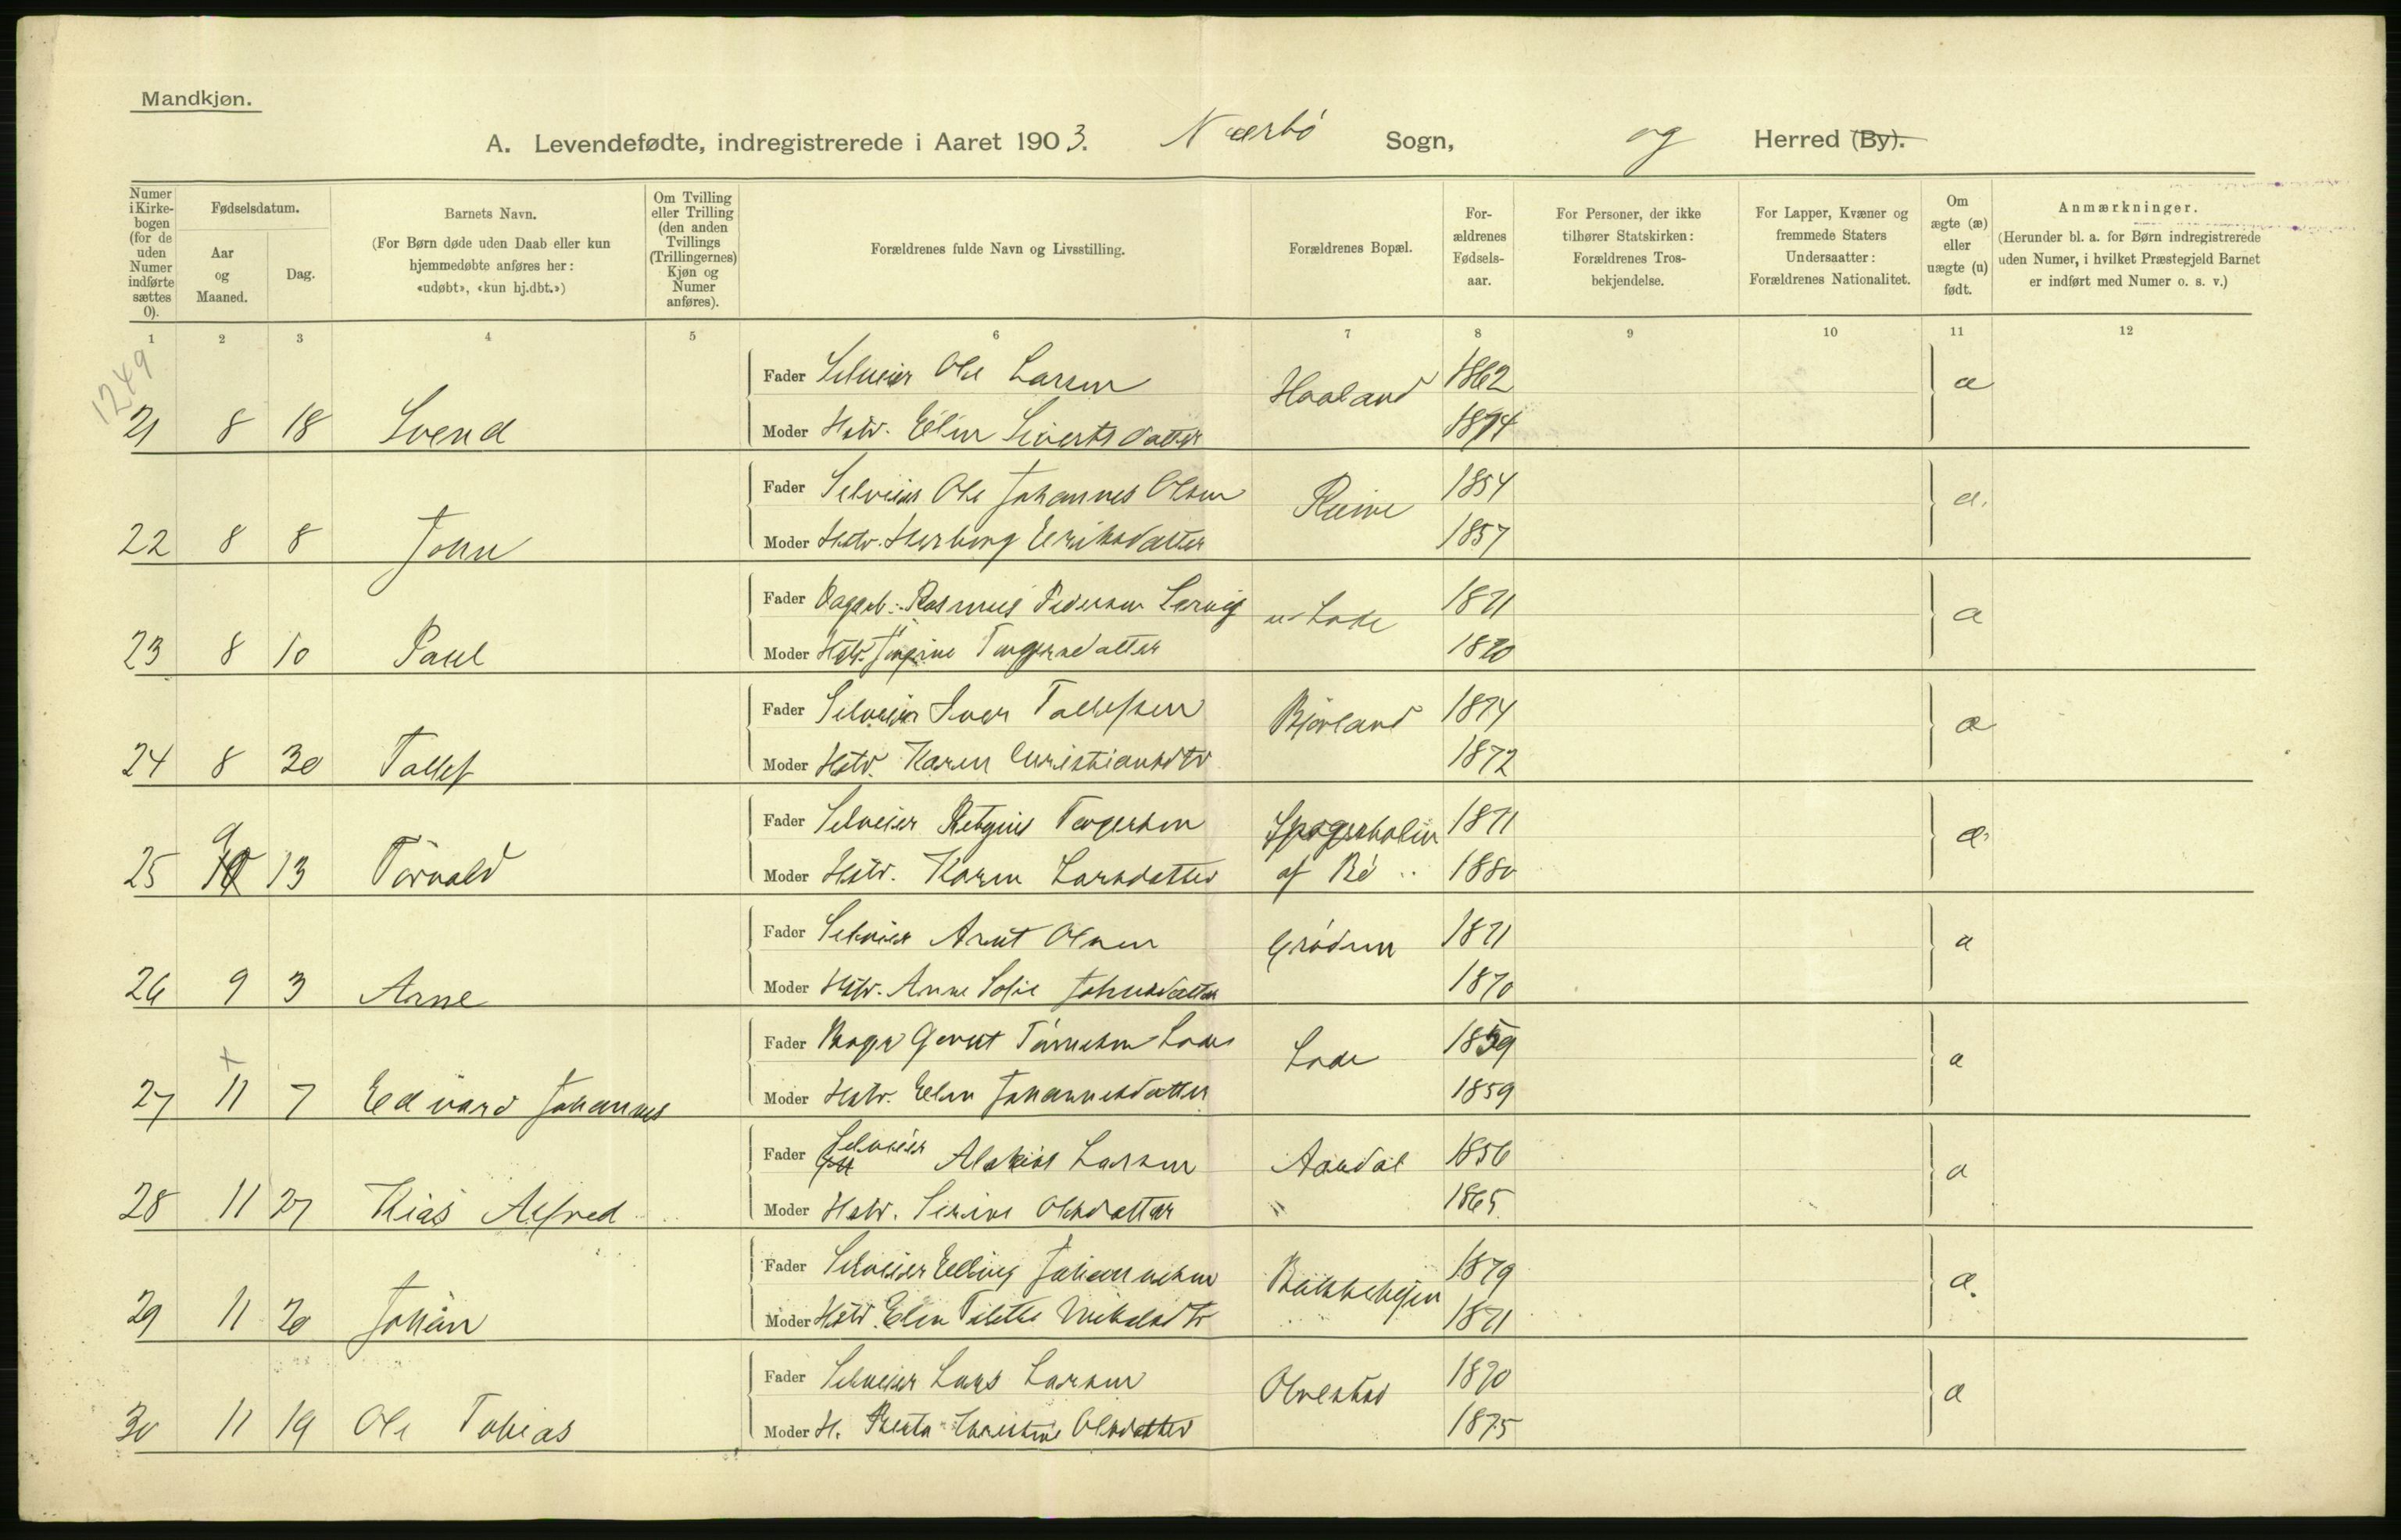 Mandkjøn.
A. Levendefødte, indregistrerede i Aaret 1903. Nærbö Sogn, og Herred (By).
Numer i Kirkebogen (for de uden Numer indførte sættes 0).
Fødselsdatum.
Aar og Maaned.
Dag.
Barnets Navn.
(For Børn døde uden Daab eller kun hjemmedøbte anføres her: «udøbt», «kun hj.dbt.»)
Om Tvilling eller Trilling (den anden Tvillings (Trillingernes) Kjøn og Numer anføres).
Forældrenes fulde Navn og Livsstilling.
Forældrenes Bopæl.
Forældrenes Fødselsaar.
For Personer, der ikke tilhører Statskirken: Forældrenes Trosbekjendelse.
For Lapper, Kvæner og fremmede Staters Undersaatter: Forældrenes Nationalitet.
Om ægte (æ) eller uægte (u) født.
Anmærkninger.
(Herunder bl. a. for Børn indregistrerede uden Numer, i hvilket Præstegjeld Barnet er indført med Numer o. s. v.)
1 2 3 4 5 6 7 8 9 10 11 12
1249
Fader Selveier Ole Larsen Haaland 1862 æ
21 8 18 Svend Moder Hstr. Elen Sivertsdatter 1874
Fader Selveier Ole Johannes Olsen 1854 æ.
22 8 8 John Moder Hstr. Herborg Eriksdatter 1857
Fader Rasmus Pedersen Lode 1871 æ
23 8 10 Paul Moder Hstr. 1870
Fader Selveier Iver Tollefsen Bjorland 1874 æ
24 8 30 Tollef Moder Hstr. Karen Christiansdtr 1872
Fader Selveier Torgersen 1871 æ
25 9 13 Torvald Moder Hstr. Karen Larsdatter af Bö 1880
Fader Selveier Arnt Olsen Grödem 1871 æ
26 9 3 Arne Moder Hstr. Anne Sofie Johnsdatter 1870
Fader Gerret Tönnesen Lode Lode 1859 æ
27 11 7 Edvard Johannes Moder Hstr. Elen Johannesdatter 1859
Fader Selveier Larsen Aandal 1856 æ
28 11 27 Alfred Moder Hstr. Serine Olsdatter " 1865
Fader Selveier Elling Johannesen 1879 æ.
29 11 20 Johan Moder Hstr. Elen Mikalsdtr 1871
Fader Selveier Lars Larsen Obrestad 1870 æ
30 11 19 Ole Tobias Moder H. Berta Christine Olsdatter 1875